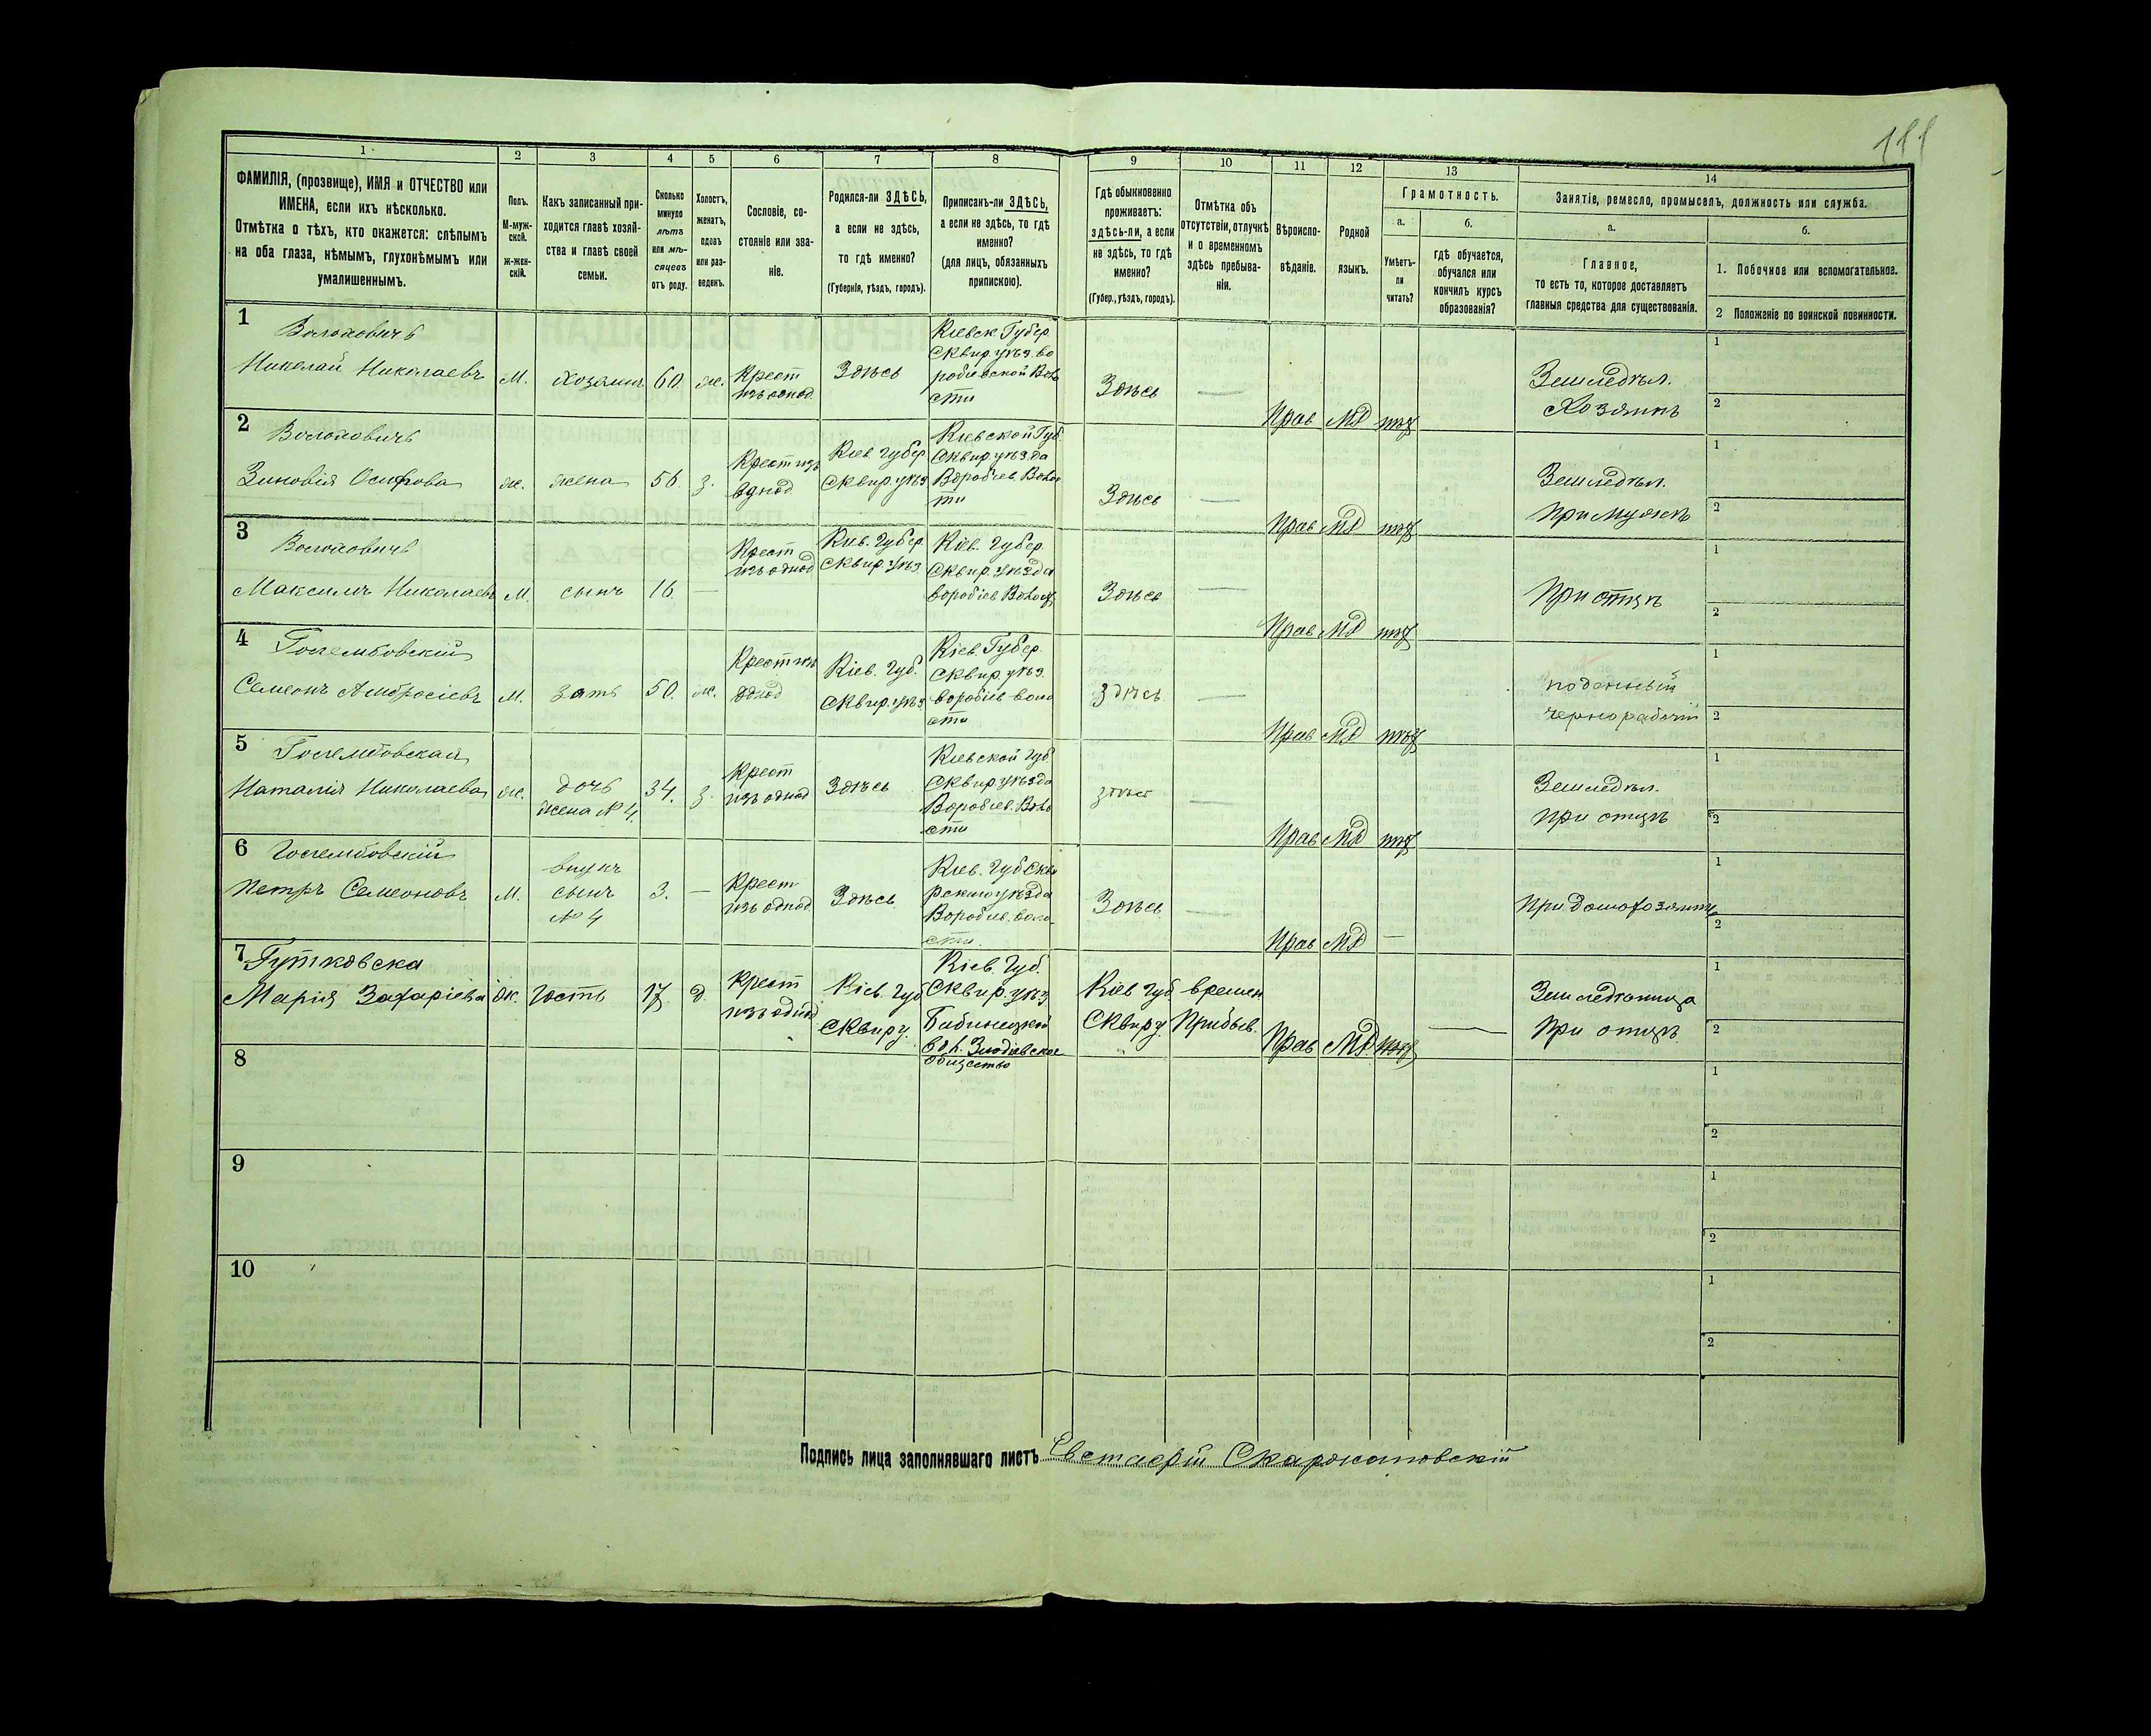 111
1 2 3 4 5 6 7 8 9 10 11 12 13 14
ФАМИЛІЯ, (прозвище), ИМЯ и ОТЧЕСТВО или
ИМЕНА, если ихъ нѣсколько.
Отмѣтка о тѣхъ, кто окажется: слѣпымъ
на оба глаза, нѣмымъ, глухонѣмымъ или
умалишеннымъ.
Полъ.
М-муж-
ской.
ж-жен-
скій.
Какъ записанный при-
ходится главѣ хозяй-
ства и главѣ своей
семьи.
Сколько
минуло
лѣтъ
или мѣ-
сяцевъ
отъ роду.
Холостъ,
женатъ,
вдовъ
или раз-
веденъ.
Сословіе, со-
стояніе или зва-
ніе.
Родился-ли ЗДѢСЬ,
а если не здѣсь,
то гдѣ именно?
(Губернія, уѣздъ, городъ).
Приписанъ-ли ЗДѢСЬ,
а если не здѣсь, то гдѣ
именно?
(для лицъ, обязанныхъ
припискою).
Гдѣ обыкновенно
проживаетъ:
здѣсь-ли, а если
не здѣсь, то гдѣ
именно?
(Губер., уѣздъ, городъ).
Отмѣтка объ
отсутствіи, отлучкѣ
и о временномъ
здѣсь пребыва-
ніи.
Вѣроиспо-
вѣданіе.
Родной
языкъ.
Грамотность.
а.
Умѣетъ-
ли
читать?
б.
гдѣ обучается,
обучался или
кончилъ курсъ
образованія?
Занятіе, ремесло, промыселъ, должность или служба.
а.
Главное,
то есть то, которое доставляетъ
главныя средства для существованія.
б.
1. Побочное или вспомогательное.
2 Положеніе по воинской повинности.
1
Николай Николаевъ
М.
хозяинъ
60.
ж.
Крест
изъ однод.
Здѣсь
Кіевск. Губер.
Сквир. уѣз. во
робіевской Воло
сти
Здѣсь
—
Прав
МР
Земледѣл.
Хозяинъ
1
2
2
Зиновія Осифова
ж.
жена
56.
з.
Крест изъ
однод
Кіев. Губер
Сквир. уѣз
Кіевской Губ.
Сквир. уѣзда
Воробіев. Воло
сти
Здѣсь
—
Прав
МР
Земледѣл.
При мужѣ
1
2
3
Максимъ Николаевъ
М.
сынъ
16
—
Крест
изъ однод
Кіев. Губер
Сквир. уѣз.
Кіев. Губер.
Сквир. уѣзда
Здѣсь
—
Прав
МР
При отцѣ
1
2
4
Семеонъ Амбросіевъ
М.
зять
50.
ж.
Крест изъ
однод
Кіев. Губ.
Сквир. уѣз.
Кіев. Губер.
Сквир. уѣз.
воробіев воло
сти
здѣсь
—
Прав
МР
поденный
чернорабочій
1
2
5
Наталія Николаева
ж.
дочь
жена № 4.
34.
з.
Крест
изъ однод
Здѣсь
Кіевской Губ
Сквир. уѣзда
Воробіев. Воло
сти
здѣсь
—
Прав
МР
Земледѣл.
при отцѣ
1
2
6
Петръ Семеоновъ
М.
внукъ
сынъ
№ 4
3.
—
Крест
изъ однод.
Здѣсь
Кіев. Губ Скви
рскаго уѣзда
Воробіев. воло-
сти.
Здѣсь
—
Прав
МР
—
1
2
7
Гутковска
Марія Захаріева
ж.
Гость
17
д.
Крест
изъ однод
Кіев. Губ
Сквир у.
Кіев. Губ.
Сквир. уѣз
общество
Кіев Губ
Сквир у.
времен
Прибыв.
Прав
МР
—
при отцѣ
1
2
8
1
2
9
1
2
10
1
2
Подпись лица заполнявшаго листъ